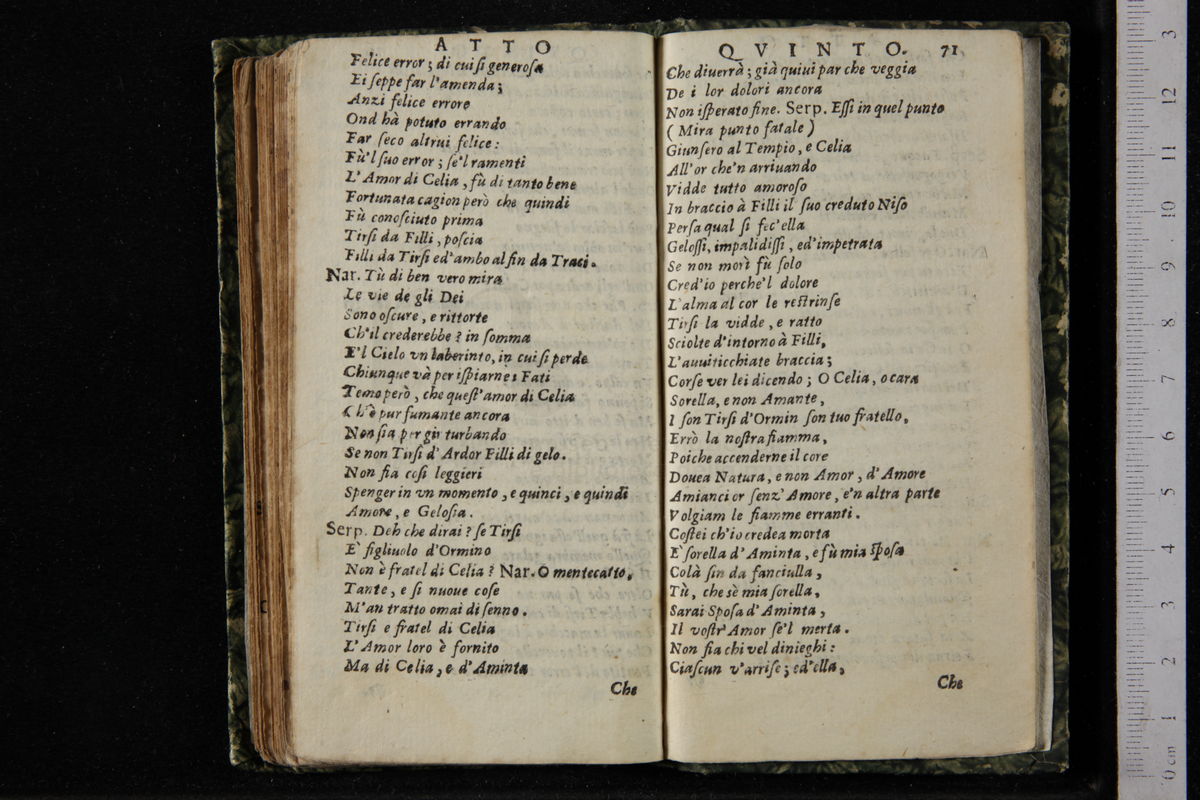 ATTO
Felice error; di cui ſi generoſa
Ei ſeppe far l'amenda;
Anzi felice errore
Ond hà potuto errando
Far ſeco altrui felice:
Fù'l ſuo error; ſe'l ramenti
L'Amor di Celia, fù di tanto bene
Fortunata cagion però che quindi
Fù conoſciuto prima
Tirſi da Filli, poſcia
Filli da Tirſi ed'ambo al fin da Traci.
Nar. Tù di ben vero mira
Le vie de gli Dei
Sono oſcure, e rittorte
Ch'il crederebbe? in ſomma
E'l Cielo vn laberinto, in cui ſi perde
Chiunque và per iſpiarne i Fati
Temo però, che queſt'amor di Celia
Ch'è pur fumante ancora
Non ſia per gir turbando
Se non Tirſi d'Ardor Filli di gelo.
Non fia coſi leggieri
Spenger in vn momento, e quinci, e quindi
Amore, e Geloſia.
Serp. Deh che dirai? ſe Tirſi
E' figliuolo d'Ormino
Non è fratel di Celia? Nar. O mentecatto,
Tante, e ſi nuoue coſe
M'an tratto omai di ſenno.
Tirſi e fratel di Celia
L'Amor loro è fornito
Ma di Celia, e d'Aminta
Che
QVINTO. 71
Che diuerrà; già quiui par che veggia
De i lor dolori ancora
Non iſperato fine. Serp. Eſſi in quel punto
(Mira punto fatale)
Giunſero al Tempio, e Celia
All'or che'n arriuando
Vidde tutto amoroſo
In braccio à Filli il ſuo creduto Niſo
Penſa qual ſi fec'ella
Geloſſi, impalidiſſi, ed'impetrata
Se non morì fù ſolo
Cred'io perche'l dolore
L'alma al cor le reſtrinſe
Tirſi la vidde, e ratto
Sciolte d'intorno à Filli,
L'auuiticchiate braccia;
Corſe ver lei dicendo; O Celia, o cara
Sorella, e non Amante,
I ſon Tirſi d'Ormin ſon tuo fratello,
Errò la noſtra fiamma,
Poiche accenderne il core
Douea Natura, e non Amor, d'Amore
Amianci or ſenz'Amore, e'n altra parte
Volgiam le fiamme erranti.
Coſtei ch'io credea morta
E' ſorella d'Aminta, e fù mia Spoſa
Colà ſin da fanciulla,
Tù, che sè mia ſorella,
Sarai Spoſa d'Aminta,
Il voſtr'Amor ſe'l merta.
Non ſia chi vel dinieghi:
Ciaſcun v'arriſe; ed'ella,
Che